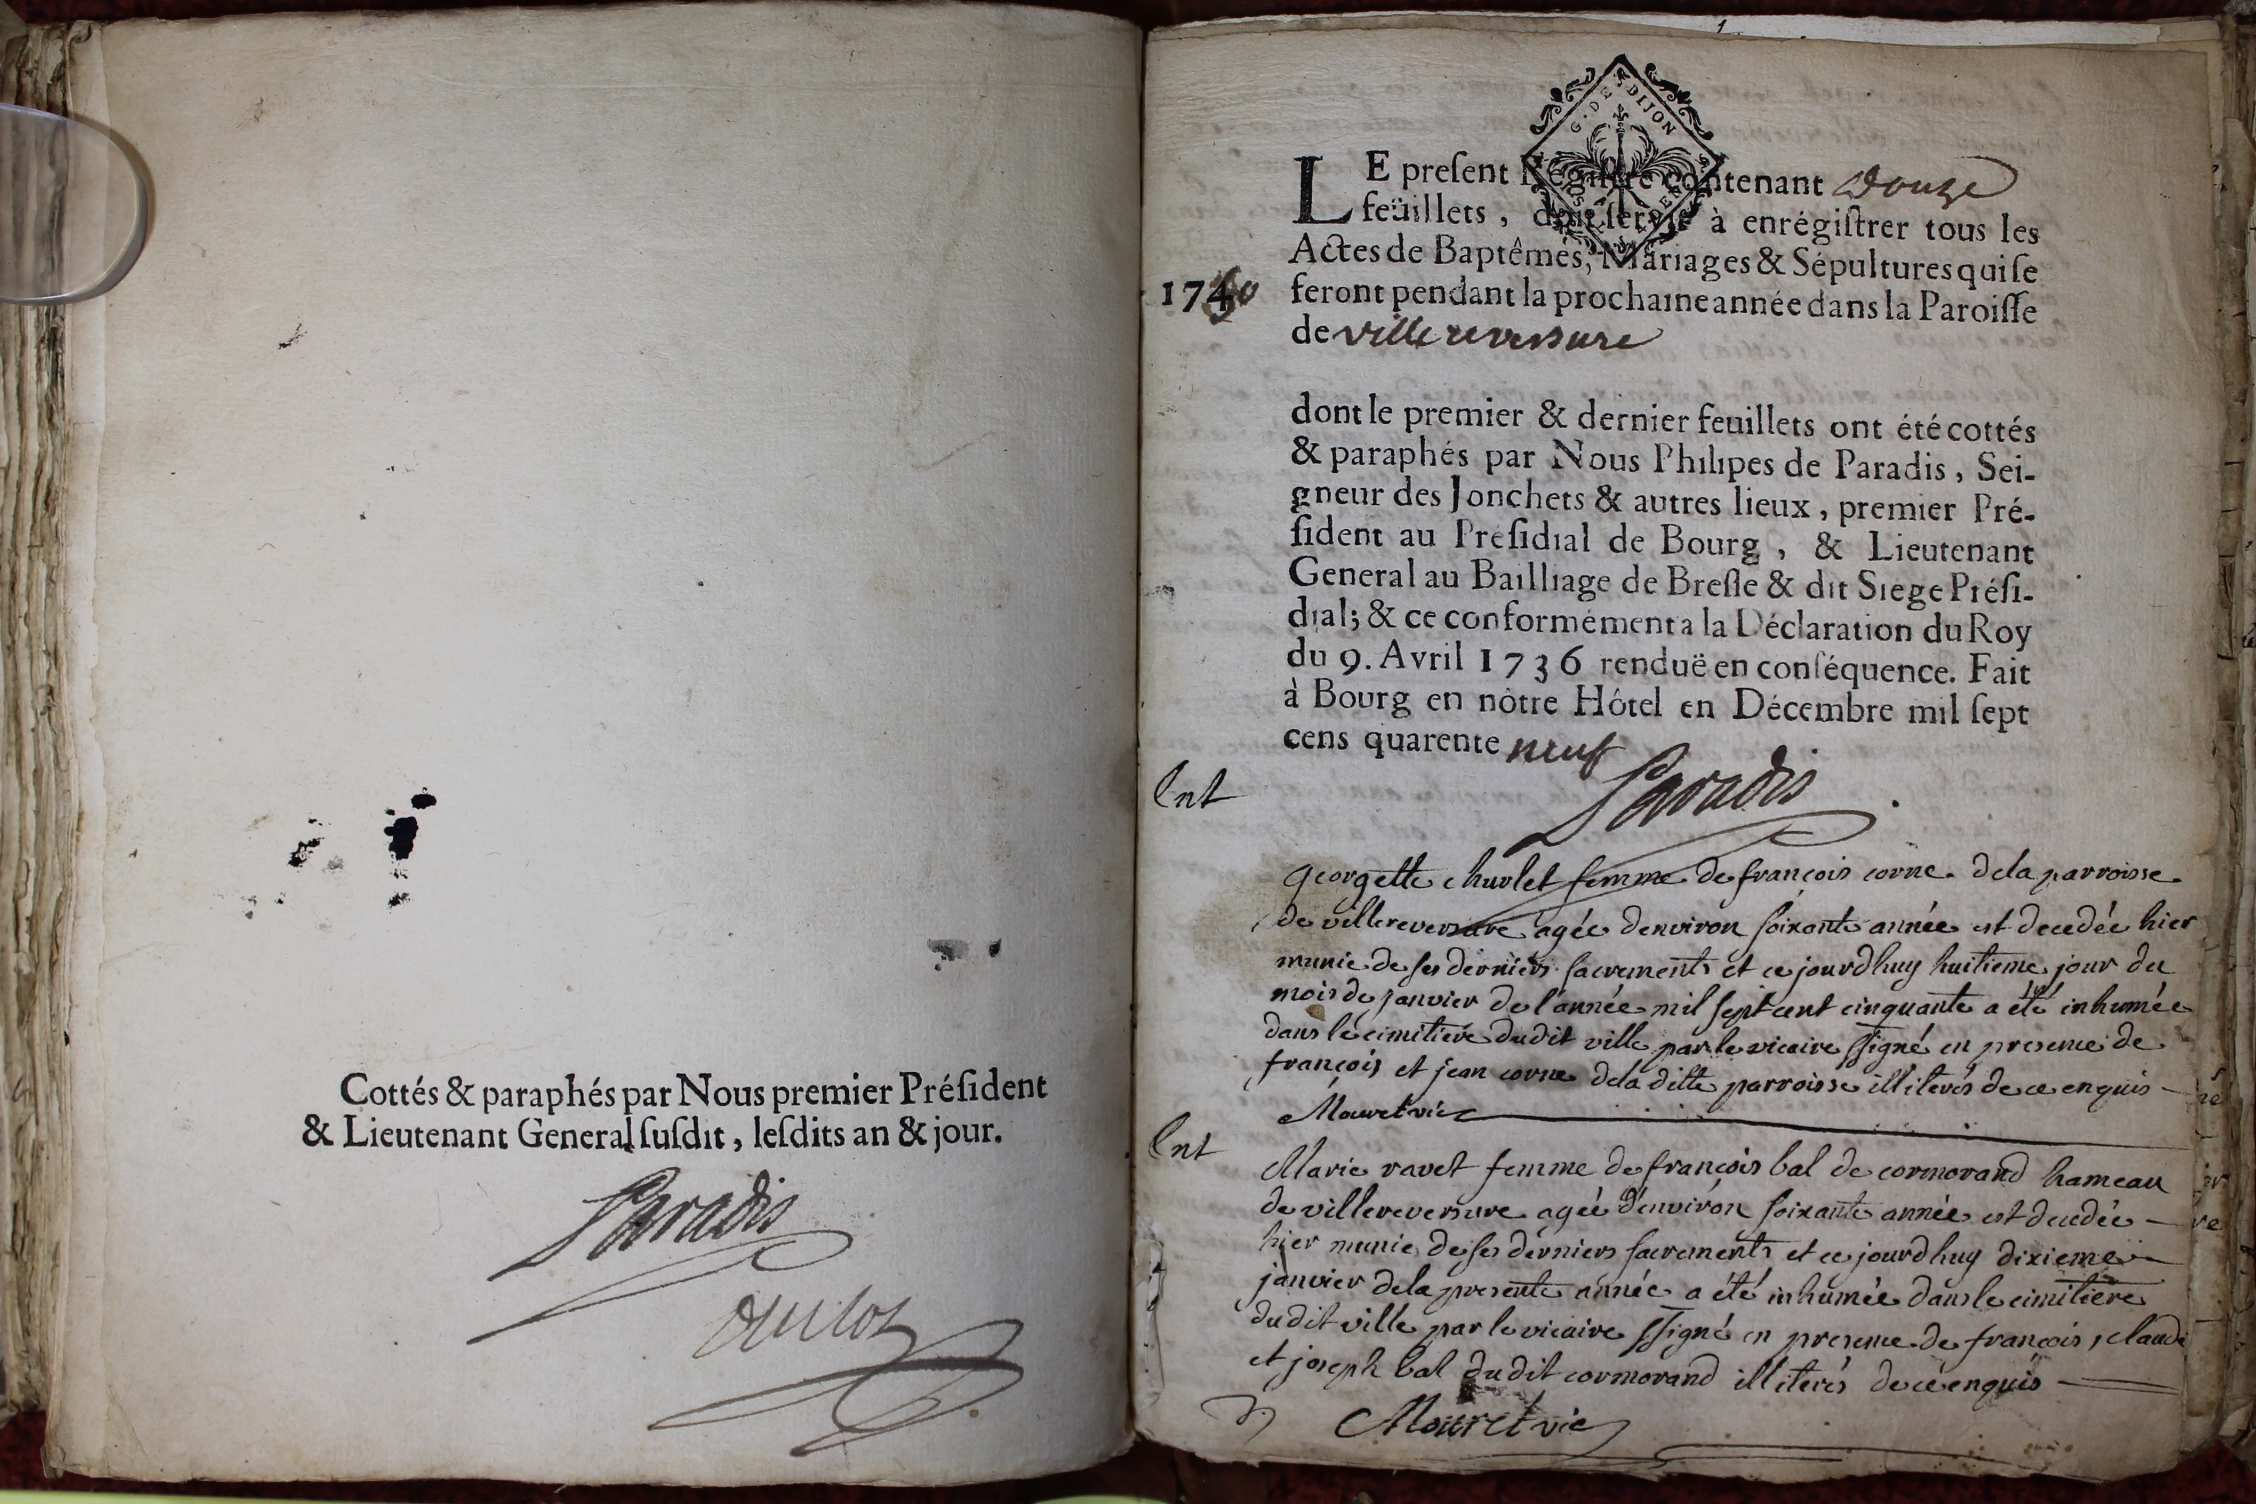 Cottés & paraphés par Nous premier Préſident
& Lieutenant General ſuſdit, leſdits an & jour.
Paradis
1
G. DE DIJON
LE preſent Regiſtre contenant douze
feüillets, doit ſervir à enrégiſtrer tous les
Actes de Baptêmes, Mariages & Sépultures qui ſe
1750
feront pendant la prochaine année dans la Paroiſſe
de villereversure
dont le premier & dernier feuillets ont été cottés
& paraphés par Nous Philipes de Paradis, Sei-
gneur des Jonchets & autres lieux, premier Pré-
ſident au Préſidial de Bourg, & Lieutenant
General au Bailliage de Breſſe & dit Siege Préſi-
dial; & ce conformément a la Déclaration du Roy
du 9. Avril 1736 renduë en conſéquence. Fait
à Bourg en nôtre Hôtel en Décembre mil ſept
cens quarente neuf
Paradis
Ent
georgette churlet femme de françois corne de la parroisse
de villereversure agée denviron soixante année est decedée hier
munie de ses derniers sacrements et ce jourdhuy huitieme jour du
mois de janvier de l'année mil sept cent cinquante a été inhumée
dans le cimitiere dudit ville par le vicaire ssigné en presence de
françois et jean corne dela ditte parroisse illiterés de ce enquis
Mouret vic
Ent
Marie ravet femme de françois bal de cormorand hameau
de villereversure agée d'environ soixante année est decedée
hier munie de ses derniers sacrements et ce jourdhuy dixieme
janvier dela presente année a été inhumée dans le cimitiere
dudit ville par le vicaire ssigné en presence de françois, claude
et joseph bal dudit cormorand illiterés de ce enquis
Mouret vic